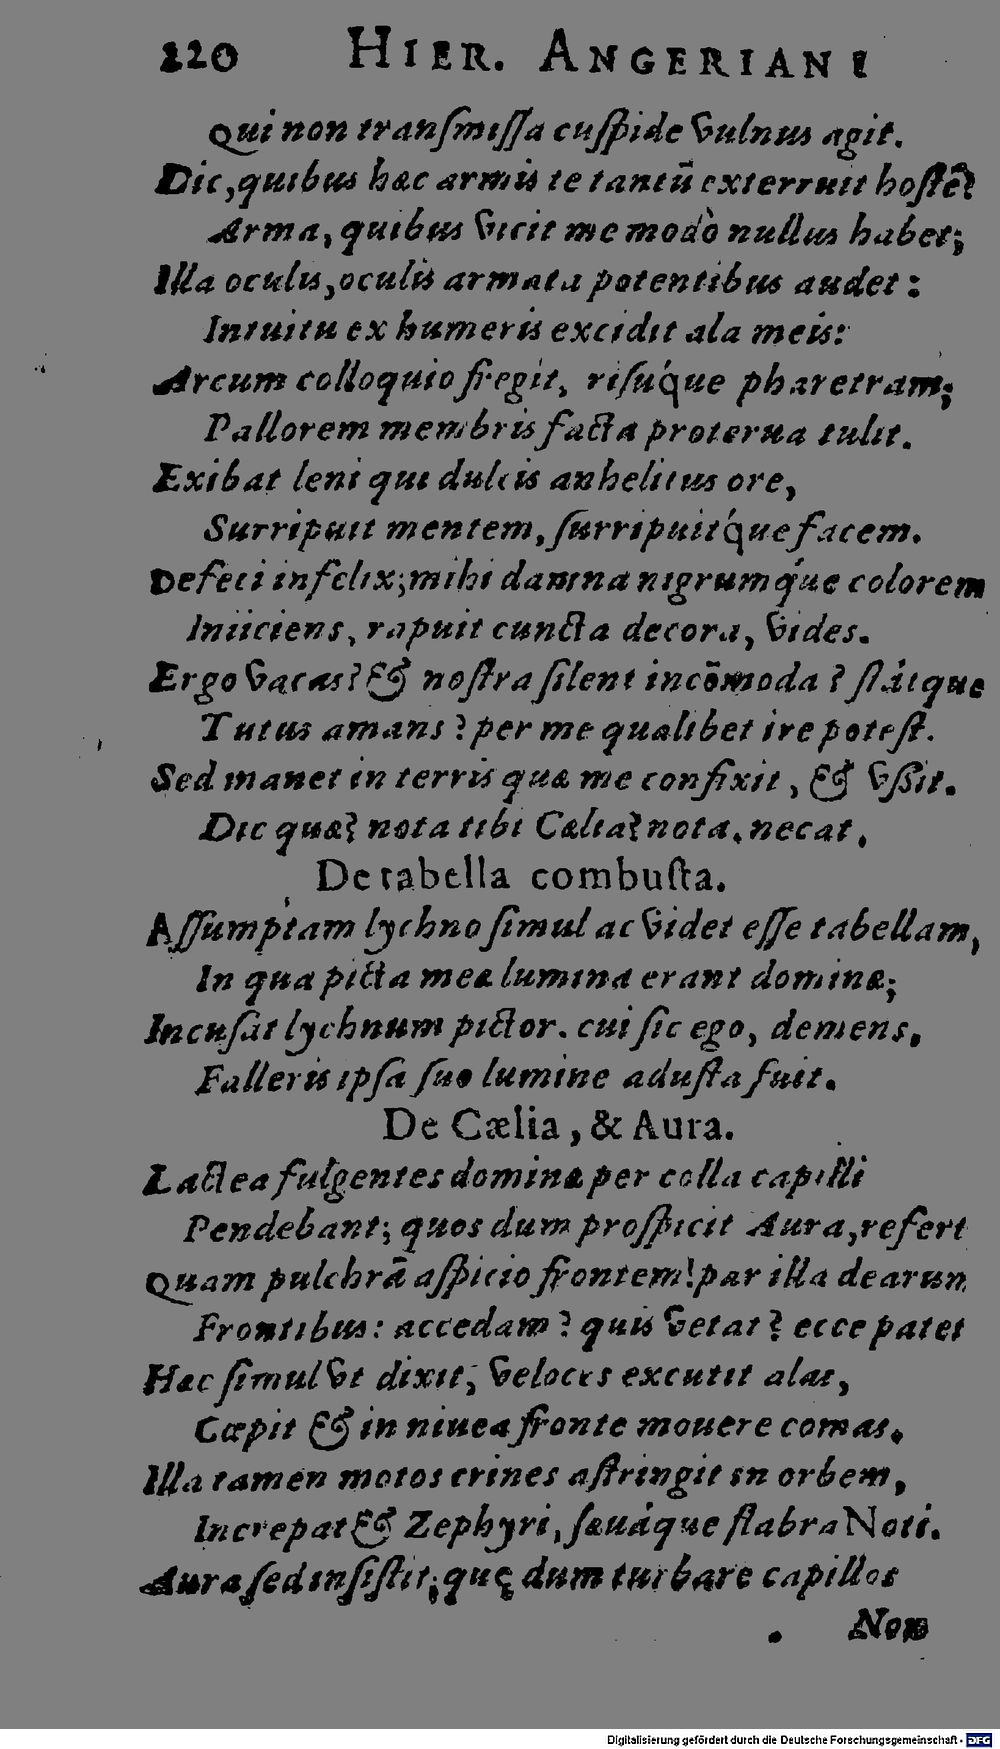 220 HIER. ANGERIANI
Qui non tranſmiſſa cuſpide vulnus agit.
Dic, quibus hæc armis te tantũ exterruit hoſtẽ?
Arma, quibus vicit me modò nullus habet;
Illa oculis, oculis armata potentibus audet:
Intuitu ex humeris excidit ala meis:
Arcum colloquio fregit, riſuq́ue pharetram;
Pallorem membris facta proterua tulit.
Exibat leni qui dulcis anhelitus ore,
Surripuit mentem, ſurripuitq́ue facem.
Defeci infelix; mihi damna nigrumq́ue colorem
Iniiciens, rapuit cuncta decora, vides.
Ergo vacas? & noſtra ſilent incõmoda? ſtátque
Tutus amans? per me qualibet ire poteſt.
Sed manet in terris quæ me confixit, & vſsit.
Dic quæ? nota tibi Cælia? nota. necat.
De tabella combuſta.
Aſſumptam lychno ſimul ac videt eſſe tabellam,
In qua picta meæ lumina erant dominæ;
Incuſat lychnum pictor. cui ſic ego, demens,
Falleris ipſa ſuo lumine aduſta fuit.
De Cælia, & Aura.
Lactea fulgentes dominæ per colla capilli
Pendebant; quos dum proſpicit Aura, refert
Quam pulchrã aſpicio frontem! par illa dearum
Frontibus: accedam? quis vetat? ecce patet
Hæc ſimul vt dixit, veloces excutit alas,
Cœpit & in niuea fronte mouere comas.
Illa tamen motos crines aſtringit in orbem,
Increpat & Zephyri, ſæuáque flabra Noti.
Aura ſed inſiſtit; quę dum turbare capillos
Non
Digitalisierung gefördert durch die Deutsche Forschungsgemeinschaft - DFG